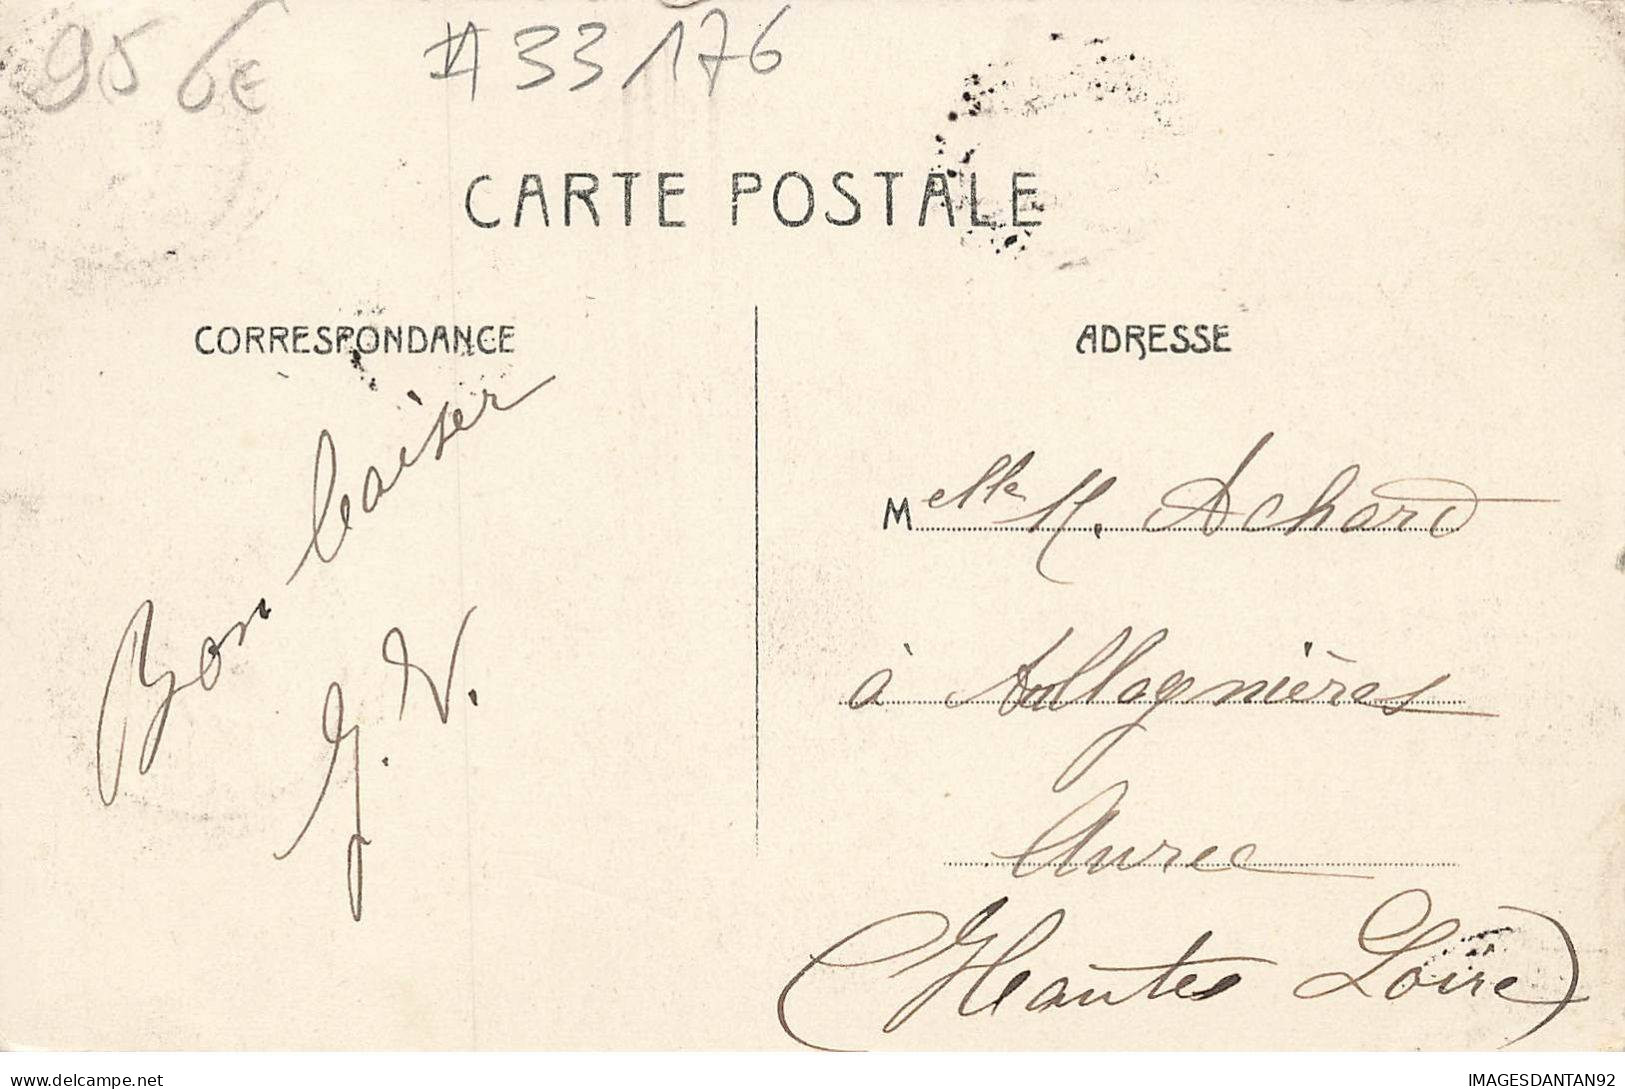 95 6€
#33176
CARTE POSTALE
CORRESPONDANCE
Bon baiser
G. V.
ADRESSE
Melle M. Achard
à Allagnières
Aurec
(Hautes Loire)
delcampe.net
IMAGESDANTAN92